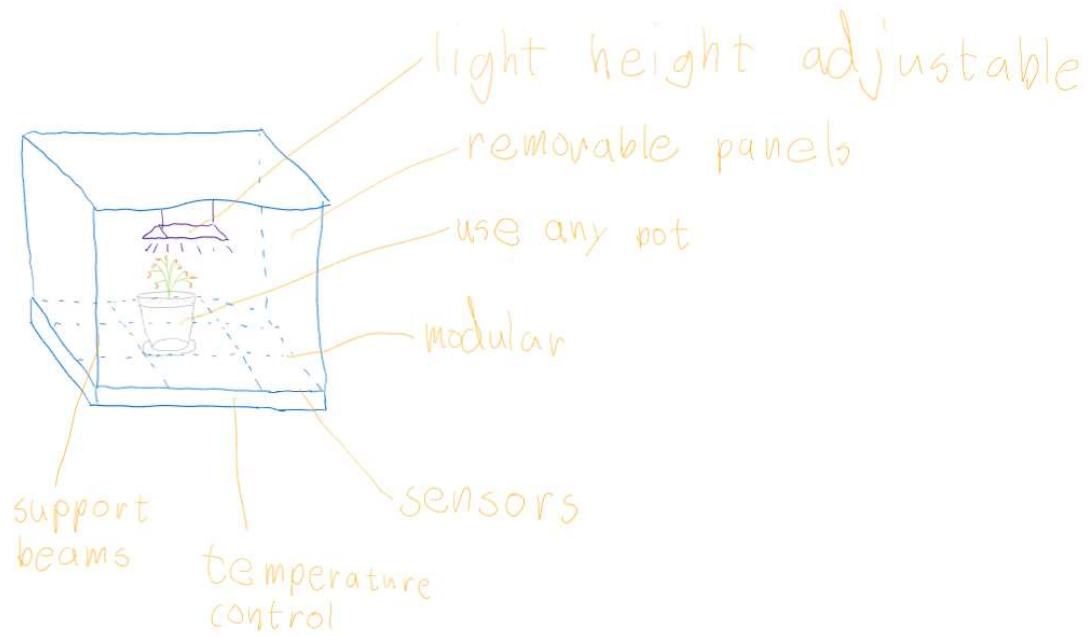 light height adjustable
removable panels
use any pot
modular
sensors
support
beams
temperature
control